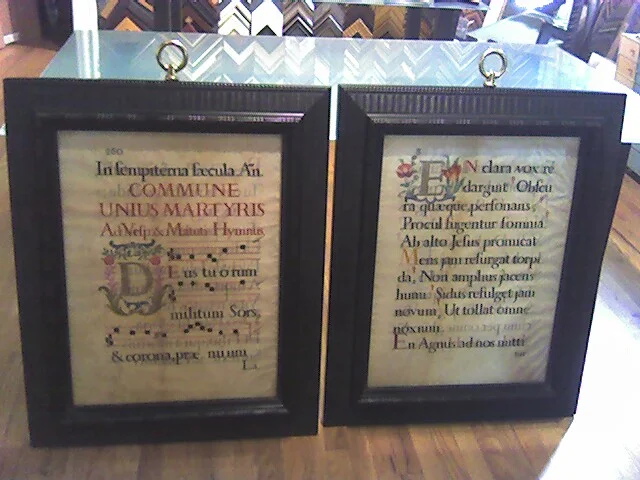 In sempiterna sæcula. Am.
COMMUNE
UNIUS MARTYRIS
Ad Vesp. & Matut. Hymnus
DEus tuorum
militum Sors,
& corona, præmium
L
EN clara vox re
darguit Obscu
ra quæque, personans
Procul fugentur somnia
Ab alto Jesus promicat
Mens jam resurgat torpi
da, Non amplius jacens
humi Sidus refulget jam
novum, Ut tollat omne
noxium.
En Agnus ad nos mitti